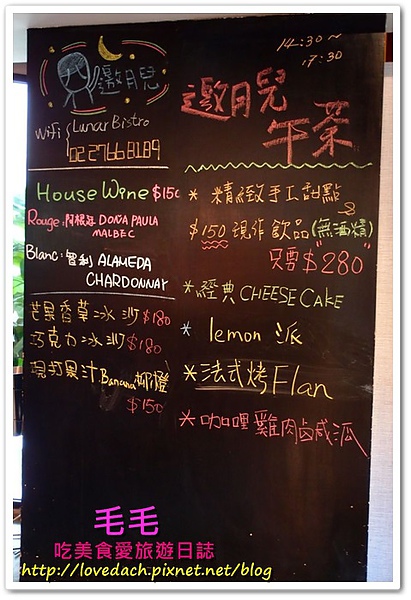 邀月兒
WiFi { Lunar Bistro
02 27668189
House Wine $150
Rouge: 阿根廷 DOÑA PAULA
MALBEC
Blanc: 智利 ALAMEDA
CHARDONNAY
芒果香草冰沙 $180
巧克力冰沙 $180
現打果汁 Banana 柳橙
$150
14:30~
17:30
邀月兒
午茶
* 精緻手工甜點
$150 現作飲品(無酒精)
只要$280
*經典 CHEESE CAKE
* lemon 派
*法式烤Flan
*咖哩雞肉鹹派
毛毛
吃美食愛旅遊日誌
http://lovedach.pixnet.net/blog